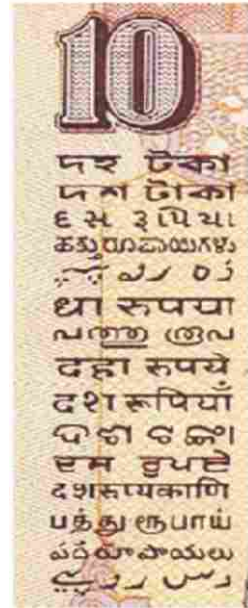 10
দহ টকা
দশ টাকা
દસ રૂપિયા
ಹತ್ತು ರೂಪಾಯಿಗಳು
धा रुपया
പത്തു രൂപ
दहा रुपये
दश रुपियाँ
ଦଶ ଟଙ୍କା
ਦਸ ਰੁਪਏ
दशरूप्यकाणि
பத்து ரூபாய்
పది రూపాయలు
دس روپے